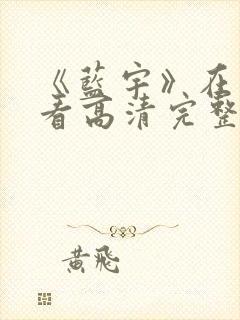 《蓝宇》在
看高清完整
黄飞